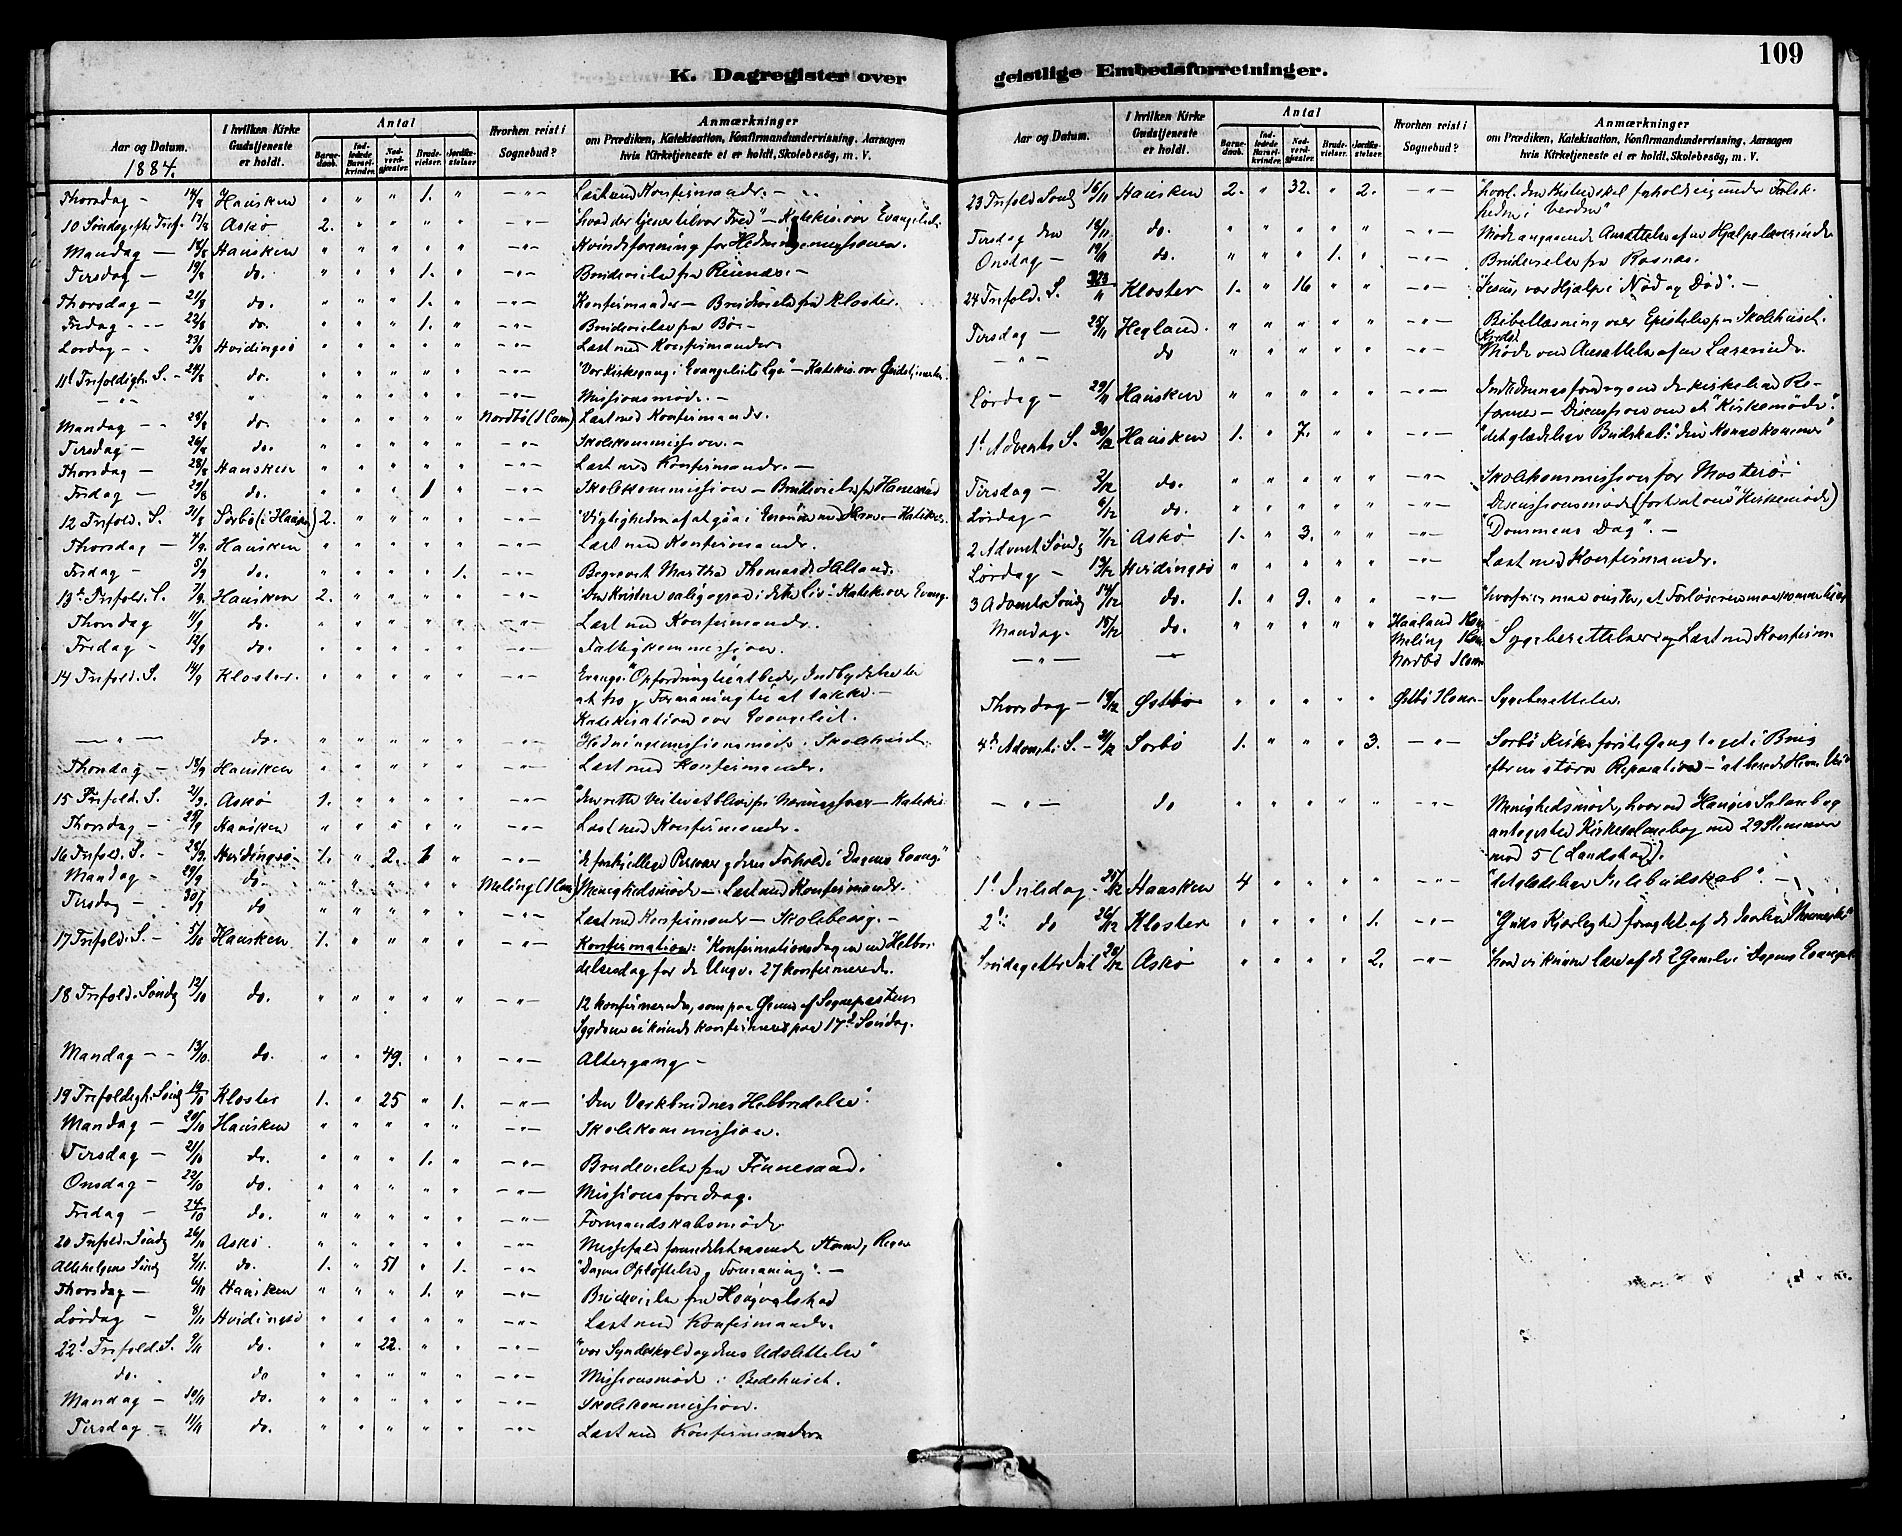 109
K. Dagregister over geistlige Embedsforretninger.
Aar og Datum. | I hvilken Kirke Gudstjeneste er holdt. | Antal | Hvorhen reist i Sognebud? | Anmærkninger
Barnedaab. | Indledede Barselkvinder. | Nadverdgjæster. | Brudevielser. | Jordfæstelser.
om Prædiken, Katekisation, Konfirmandundervisning, Aarsagen
hvis Kirketjeneste ei er holdt, Skolebesög, m. V.
1884.
Thorsdag - 14/8 Hausken " " " 1. " -"- Læst med Konfirmander. -
10 Søndag efter Tref. 17/8 Askø 2. " " " " -"- "hvad der tjener til vor Fred" - Katekis. over Evangeliet.
Mandag - 18/8 Hausken " " " " " -"- Kvindeforening for Hedningemissionen.
Tirsdag - 19/8 do. " " " 1. " -"- Brudevielse fra Reienæs. -
Thorsdag - 21/8 do. " " " 1. " -"- Konfirmander - Brudevielse fra Kloster.
Fredag - 22/8 do. " " " 1. " -"- Brudevielse fra Bø. -
Lørdag - 23/8 Hvidingsø " " " " " -"- Læst med Konfirmander.
11t Trefoldigh. S. - 24/8 do. " " " " " -"- "Vor Kirkegang i Evangeliets Lys" - Katekis. over
-"- " " " " " " Missionsmøde. -
Mandag - 25/8 do. " " " " " Nordbø (1 Com) Læst med Konfirmander.
Tirsdag - 26/8 do. " " " " " -"- Skolekommission. -
Thorsdag - 28/8 Hausken " " " " " -"- Læst med Konfirmander. -
Fredag - 29/8 do. " " " 1 " -"- Skolekommission - Brudevielse fra Hanesand
12 Trefold. S. 31/8 Sørbø (i Hausken) 2. " " " " -"- "Vigtigheden af at gaa i Enrum med Herren" - Katekis.
Thorsdag - 4/9. Hausken " " " " " -"- Læst med Konfirmander.
Fredag - 5/9 do. " " " " 1. -"- Begravet Martha Thomasd. Halland.
13de Trefold. S. 7/9. Hausken 2. " " " " -"- "Den Kristne salig ogsaa i dette Liv" - Katek. over Evang.
Thorsdag 11/9 do. " " " " " -"- Læst med Konfirmander.
Fredag - 12/9 do. " " " " " -"- Fattigkommission.
14 Trefold. S. 14/9 Kloster. " " " " " -"- Evang. "Opfordring til at bede, Indbydelse til
at tro og Formaning til at takke. -
Katekisation over Evangeliet.
-"- do. " " " " " -"- Hedningemissionsmøde i Skolehuset.
Thorsdag - 18/9 Hausken " " " " " -"- Læst med Konfirmander.
15 Trefold. S. 21/9. Askø 1. " " " " -"- "den rette Vei til at blive fri Næringssorger - Katekis.
Thorsdag - 25/9 Hausken " " " " " Læst med Konfirmander.
16 Trefold. S. - 28/9. Hvidingsø - 1. " 2. 1 " -"- "de forskjellige Personer og deres Forhold i Dagens Evang."
Mandag - 29/9 do. " " " " " Meling (1 Com) Menighedsmøde - Læst med Konfirmander.
Tirsdag - 30/9 do " " " " " -"- Læst med Konfirmander - Skolebesøg. -
17 Trefold. S. - 5/10 Hausken 1. " " " " -"- Konfirmation: "Konfirmationsdagen en Helbre-
delsesdag for de Unge. 27 konfirmerede.
18 Trefold. Søndg 12/10 do. " " " " " -"- 12 konfirmerede, som paa Grund af Sognepræstens
Sygdom ei kunde konfirmeres paa 17de Søndag.
Mandag - - 13/10. do. " " 49. " " -"- Altergang -
19 Trefoldigh. Søndg 19/10 Kloster 1. " 25 " 1. -"- "Den Værkbrudnes Helbredelse".
Mandag - 20/10 Hausken " " " " " -"- Skolekommission.
Tirsdag - 21/10 do. " " " 1. " -"- Brudevielse fra Finnesand.
Onsdag - 22/10 do. " " " " " -"- Missionsforedrag.
Fredag - 24/10 do. " " " " " -"- Formandskabsmøde
20 Trefold. Søndg 26/10 Askø. " " " " " -"- Messefald formedelst rasende Storm og Regn
Allehelgens Søndg 2/11. do. 1. " 51 " 1. -"- "Dagens Opløftelse og Formaning". -
Thorsdag - 6/11 Hausken " " " 1. " -"- Brudevielse fra Haugvalstad
Lørdag - 8/11 Hvidingsø " " " " " -"- Læst med Konfirmander.
22d Trefold. S. 9/11 do. " " 22. " " -"- "vor Syndeskyld og dens Udslettelse"
do. do " " " " " -"- Missionsmøde i Bedehuset.
Mandag - 10/11 do. " " " " " -"- Skolekommission.
Tirsdag - 11/11 do. " " " " " -"- Læst med Konfirmander
Aar og Datum. | I hvilken Kirke Gudstjeneste er holdt. | Antal | Hvorhen reist i Sognebud? | Anmærkninger
Barnedaab. | Indledede Barselkvinder. | Nadverdgjæster. | Brudevielser. | Jordfæstelser.
om Prædiken, Katekisation, Konfirmandundervisning, Aarsagen
hvis Kirketjeneste ei er holdt, Skolebesög, m. V.
23 Trefold. Søndg 16/11 Hausken 2. " 32. " 2. -"- "hvorl. den Kristne skal forholde sig under Falsk-
heden i Verden"
Tirsdag den 18/11 do. " " " " " -"- Møde angaaende Ansættelse af en Hjælpelærerinde
Onsdag - 19/11 do. " " " 1. " -"- Brudevielse fra
24 Trefold. S. 23/11 Kloster 1. " 16 " " -"- "Jesus, vor Hjælp i Nød og Død". -
Tirsdag - 25/11 Hegland. " " " " " -"- Bibellæsning over Epistelen paa Skolehuset.
-"- do " " " " " -"- Kreds Møde om Ansættelse af en Lærerinde.
Lørdag - 29/11 Hausken " " " " " -"- Indledningsforedrag om de kirkelige Re-
former - Discussion om et "Kirkemøde".
1t Advents S. 30/12 Hausken 1. " 7. " " -"- "det glædelige Budskab: "din Konge kommer"
Tirsdag - 2/12 do. " " " " " -"- Skolekommission for Mosterø.
Lørdag - 6/12 do. " " " " " -"- Discussionsmøde (fortsat om "Kirkemøde)
2 Advent Søndg 7/12 Askø 1. " 3. " " -"- "Dommens Dag". -
Lørdag - 13/12 Hvidingsø " " " " " -"- Læst med Konfirmander.
3 Advents Søndg 14/12 do. 1. " 9. " " -"- "hvorfor maa vi tro, at Forløseren maa komme
Mandag. 15/12 do. " " " " " Haaland 1 Com
Meling 1 Com Sygeberettelser og Læst med Konfirm.
-"- - Nordbø 1 Com
Thorsdag - 18/12 Østbø " " " " " Østbø 1 Com - Sygeberettelse.
4de Advents S. - 21/12 Sørbø 1. " " " 3. -"- Sørbø Kirke første Gang taget i Brug
efter en større Reparation - "at berede Herrens Vei"
-"- do " " " " " -"- Menighedsmøde, hvor ved Hauges Salmebog
antoges til Kirkesalmebog med 29 Stemmer
mod 5 (Landstads).
1t Juledag - 25/12 Hausken 4 " " " " -"- "det glædelige Julebudskab". -
2d do 26/12 Kloster " " " " 1. -"- "Guds Kjærlighed foragtet af de
Søndag efter Jul 28/12 Askø " " " " 2. -"- "hvad vi kunne lære af de 2 Gamle i Dagens Evangel.